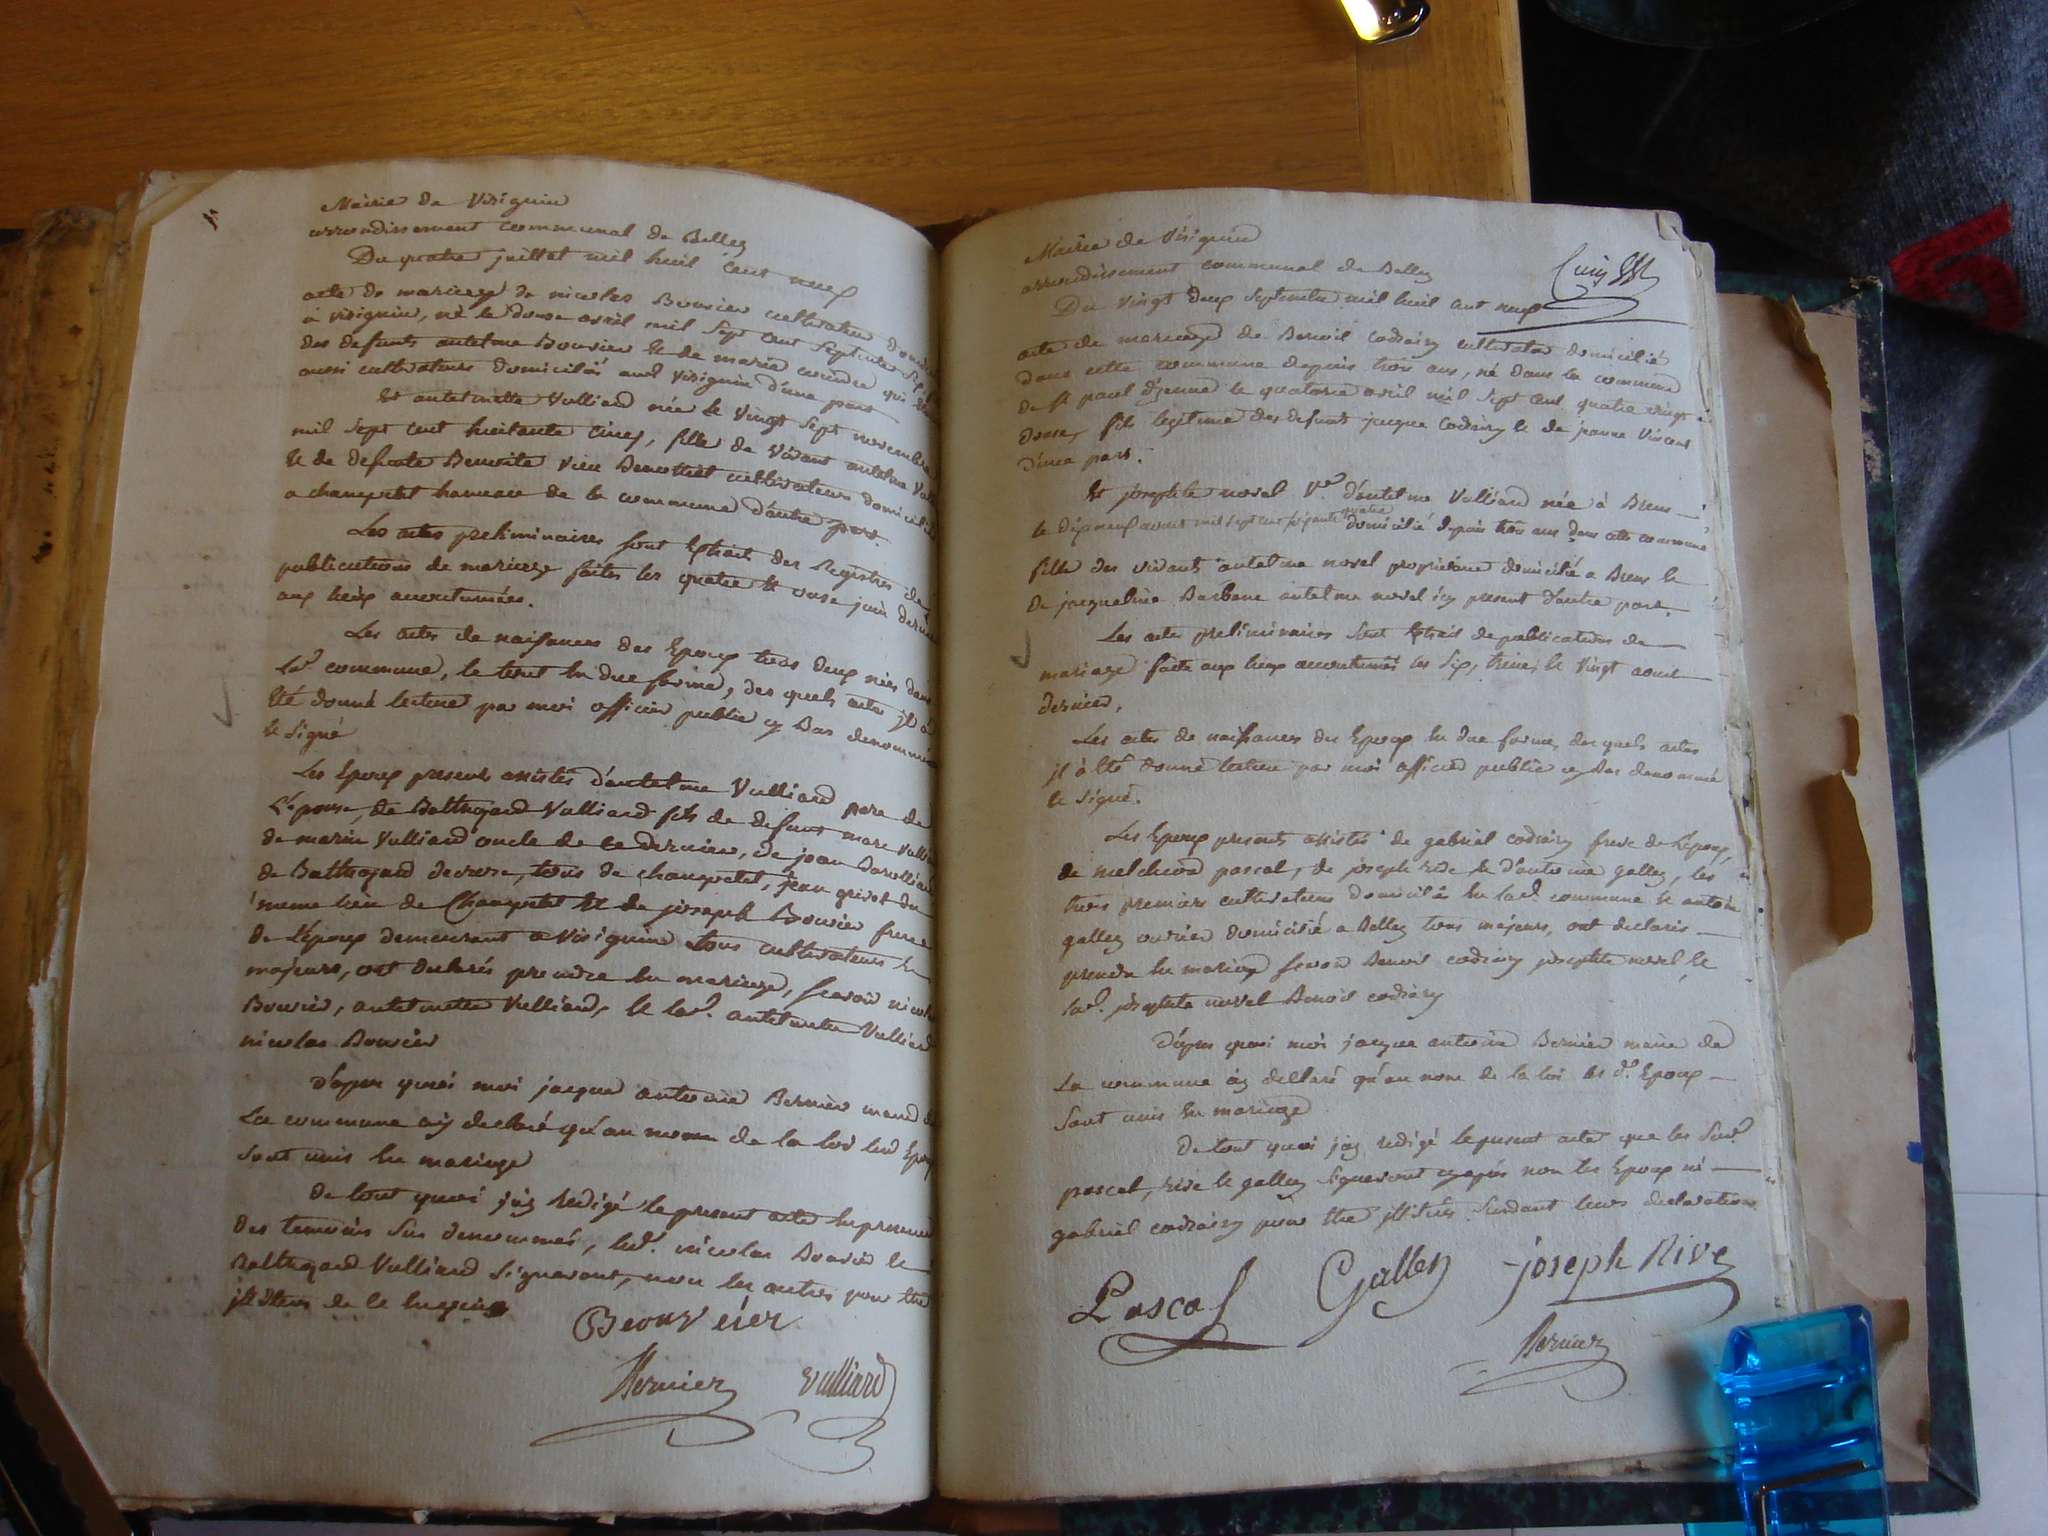 Mairie de Virignin
arrondissement communal de Belley
Du quatre juillet mil huit cent neuf
acte de mariage de nicolas Bouvier cultivateur
à virignin, né le douze avril mil sept cent septente
des defunts antelme Bouvier et de marie qui
aussi cultivateurs domiciliés aud virignin d'une part
Et antelmette Vulliard née le vingt sept novembre
mil sept cent huitante cinq, fille de vivant antelme
et de defunte Benoite cultivateurs
a champetel hameau de la commune d'autre part.
Les actes preliminaires sont Extrait des Registres de
publications de mariage faites les quatre et onze juin
aux lieux accoutumées.
Les actes de naissances des Epoux tous deux nées dans
lad. commune, le tout En due forme, des quels acte jl à
Eté donné lecture par moi officier public cy Bas denommé
et signé
Les Epoux presents assistés d'antelme Vulliard pere de
L'épouse, de Balthazard Vulliard fils de defunt marc
de marin Vulliard oncle de ce dernier, de jean
de Balthazard tous de champetel, jean du
meme lieu de Champetel Et de joseph Bouvier frere
de L'époux demeurant a Virignin tous cultivateurs Et
majeurs, ont declarés prendre En mariage, scavoir
Bouvier, antelmette Vulliard, et lad. antelmette Vulliard
nicolas Bouvier
d'apres quoi moi jacque antoine Bernier
La commune aïj declaré qu'au nom de la loi
sont unis En mariage
de tout quoi j'aij redigé le present acte En presence
des temoins sus denommés, nicolas Bouvier Et
Balthazard Vulliard signeront, non les autres pour Etre
jllitéres de ce
Beouvéier
Bernier vulliard
Mairie de Virignin
arrondissement communal de Belley
Du vingt deux septembre mil huit cent neuf
acte de mariage de Benoit codrairy cultivateur domicilié
dans cette commune depuis trois ans, né dans la commune
de st paul d'yenne le quatorze avril mil sept cent quatre vingt
douze, fils legitime des defunts jacque codrairy et de jeanne Vincent
d'une part.
Et josephte novel Ve. d'antelme Vulliard née à Brens
le dixneuf aoust mil sept cent soixante quatre domicilié depuis trois ans dans cette commune
fille des vivants antelme novel proprietaire domicilié a Brens Et
de jacqueline Barbane antelme novel icy present d'autre part.
Les actes preliminaires sont Extrait de publications de
mariage faite aux lieux accoutumés les six, treize, et vingt aoust
dernier.
Les actes de naissances des Epoux En due forme, desquels actes
jl à Eté donné lecture par moi officier public cy bas denommé
et signé.
Les Epoux presents assistés de gabriel codrairy frere de L'epoux,
de melchiord pascal, de joseph rive Et d'antoine galley, les
trois premiers cultivateurs domiciliés En lad. commune Et antoine
galley ouvrier domicilié a Belley tous majeurs, ont declarés
prendre En mariage scavoir Benoit codrairy josephte novel, Et
lad. josephte novel Benoit codrairy
d'apres quoi moi jacque antoine Bernier maire de
La commune aij declaré qu'au nom de la loi les d. Epoux
sont unis En mariage
De tout quoi j'aij redigé le present acte que les
pascal, rive Et galley signeront cy apres non les Epoux ni
gabriel codrairy pour Etre jllitéres suivant leurs declarations
Pascal Galley joseph Rive
Bernier